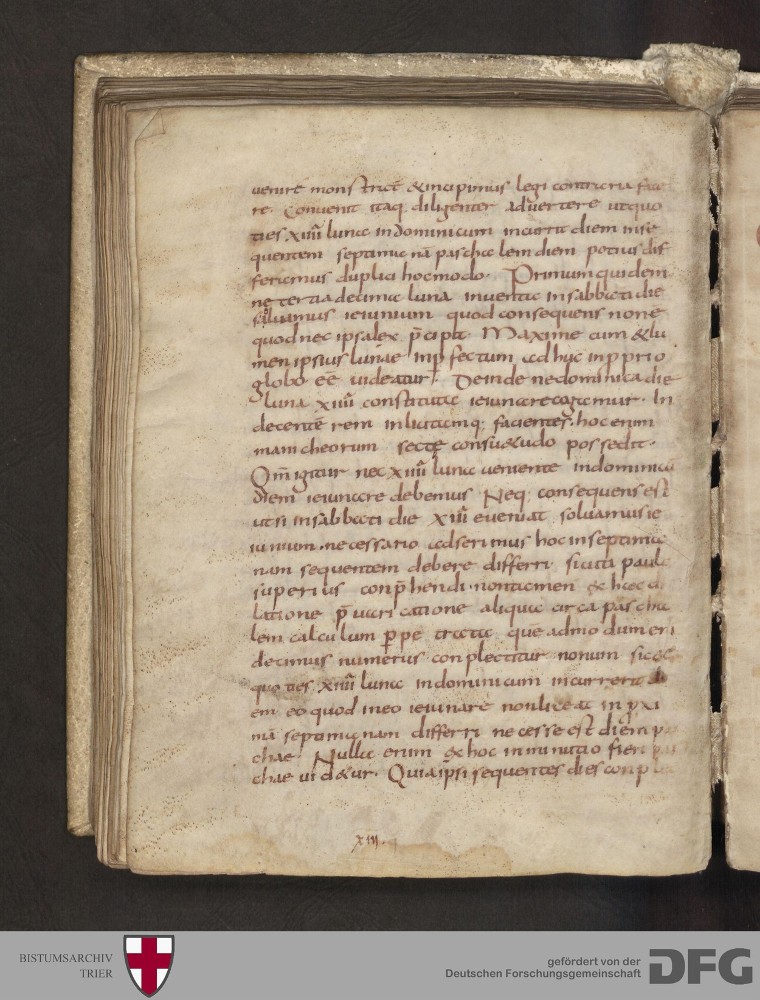 uenire monstrat̄ &incipimus legi contraria fac
re. Conuenit itaq; diligenter aduertere utquo
ties xiiii lunae indominicum incurrit diem inse
quentem septimanā paschalem diem potius dif
feramus duplici hocmodo. Primum quidem
ne tertiadecima luna inuenta insabbati die
soluamus ieiunium quod consequens non e
quod nec ipsa lex p̄cipit. Maxime cum & lu
men ipsius lunae inp̄fectum adhuc inpprio
globo eē uideatur. Deinde nedominica die
luna xiiii constituta ieiunare cogamur. In
decentē rem inlicitamq; facientes. hoc enim
manicheorum sectę consuetudo possedit.
Qm̄ igitur nec xiiii luna ueniente indominicū
diem ieiunare debemus. Neq; consequens est
utsi insabbati die xiiii eueniat soluamus ie
iunium. necessario adserimus hoc inseptima
nam sequentem debere differri. sicuti paulo
superius conp̄hendi. non tamen ex hac di
latione p̄uaricatione aliqua circa pascha
lem calculum p̄petrata. quēadmodum eni
decimus numerus conplectitur nonum sic &
quoties xiiii luna indominicum incurrerit di
em eo quod in eo ieiunare non liceat in pxi
mā septimanam differri necesse est diem pas
chae. Nulla enim ex hoc inminutio fieri pas
chae uid&ur. Quia ipsi sequentes dies conpl
xiii
BISTUMSARCHIV
TRIER
gefördert von der
Deutschen Forschungsgemeinschaft
DFG